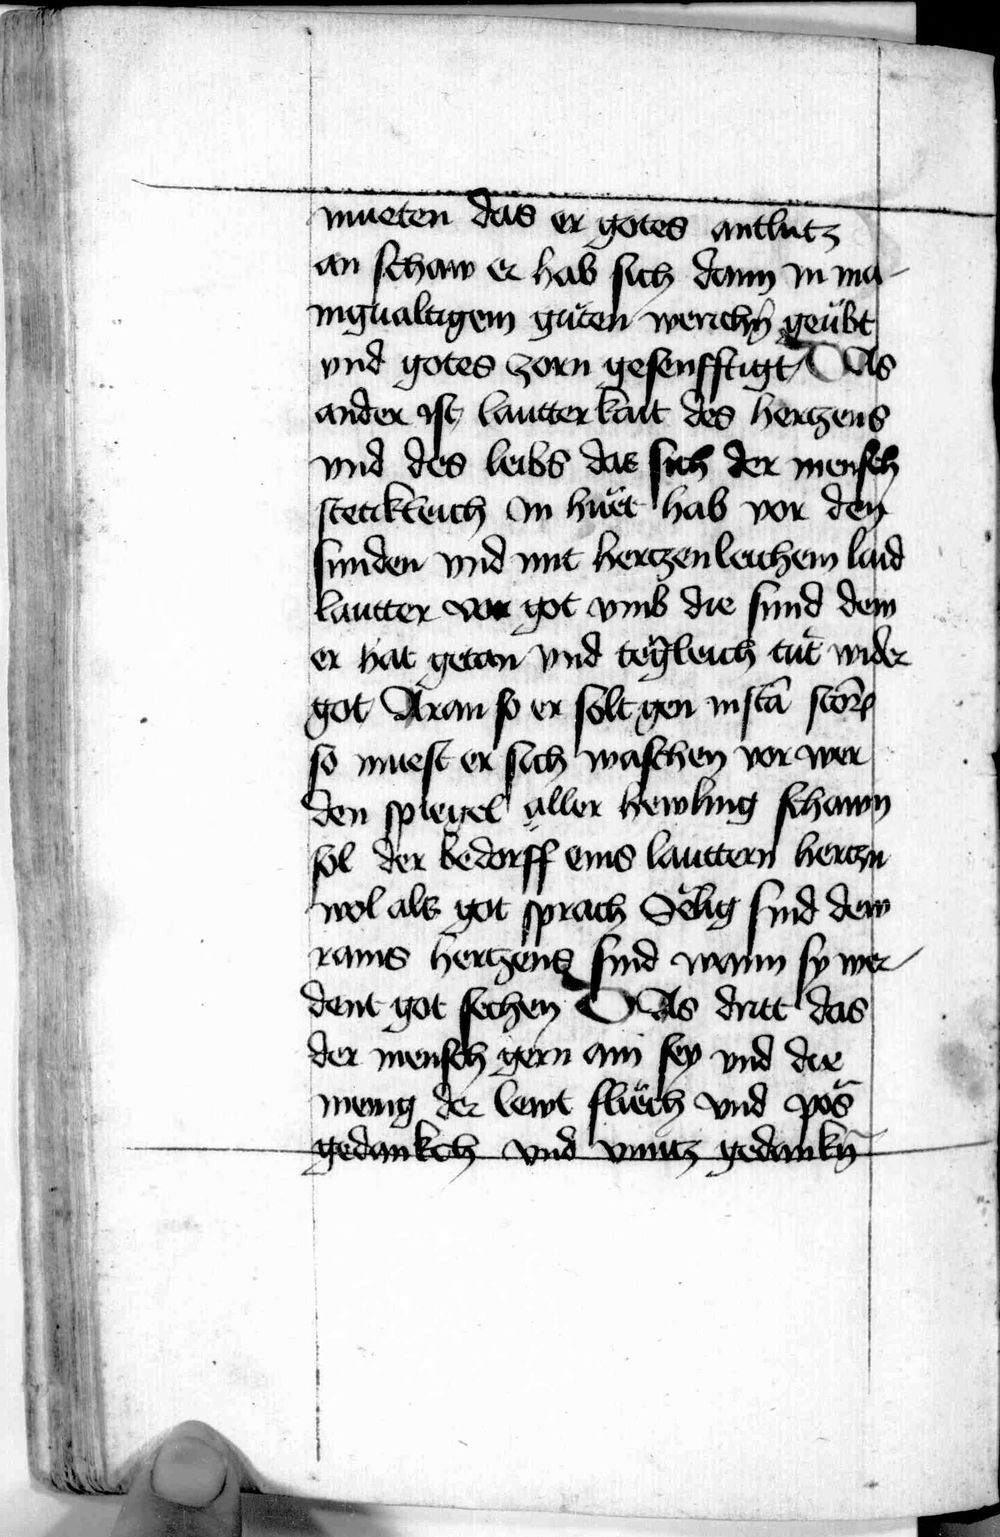 mueten das er gotes antlutz
an schaw er hab sich dann in ma-
nigualtigem guͦten werichn̄ geübt
vnd gotes zorn gesenfftigt Das
ander ist lautterkait des hertzens
vnd des leibs das sich der mensch
stetikleich in huͤt hab vor den
sunden vnd mit hertzenleichem laid
lautter vor got vmb die sund dew
er hat getan vnd tegleich tuͦt wider
got Aron so er solt gen in scā scōrꝫ
so muest er sich waschen vor wer
den spiegel aller hewling schawn
sol der bedorff eins lauttern hertzn
wol als got sprach Sělig sind dew
rains hertzens sind wann sy wer-
dent got sechen Das dritt das
der mensch gern ain sey vnd die
menig der lewt fluͤch vnd poͤs
gedankch vnd vnnutz gedankn̄